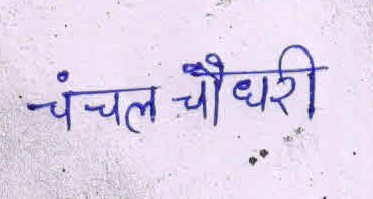 चंचल चौधरी